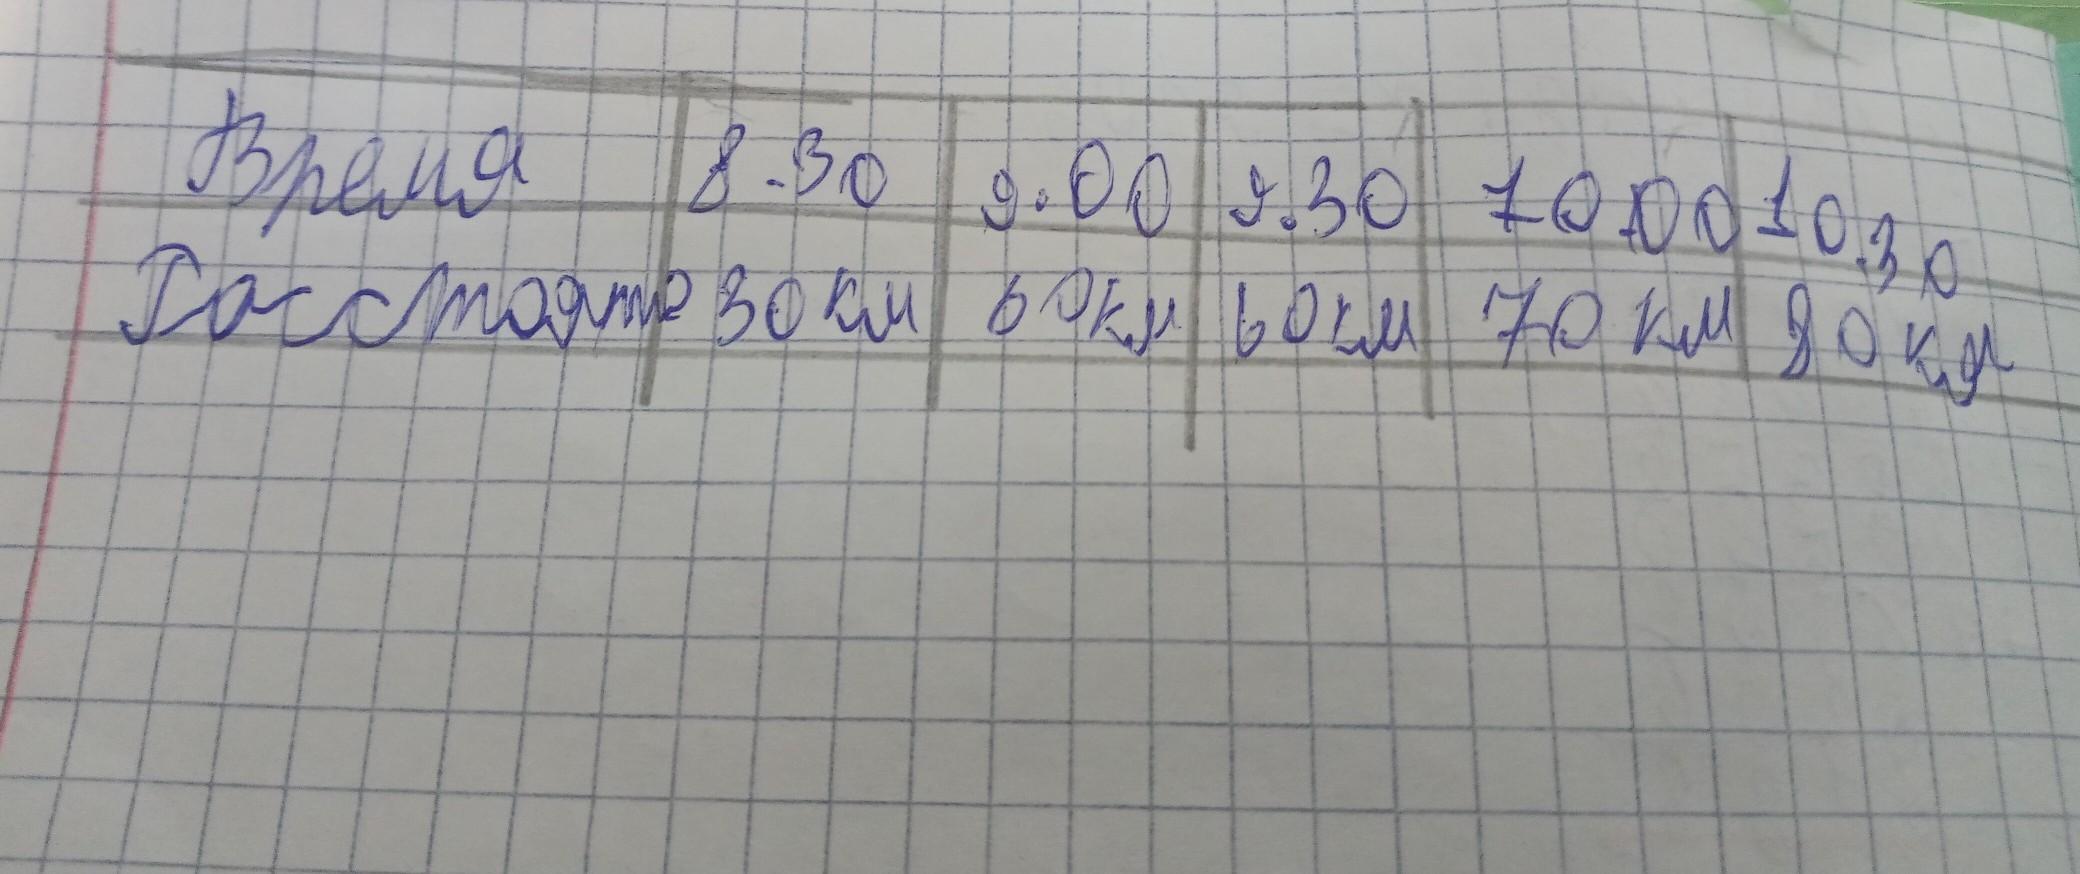 Время 8.30 9.00 9.30 10.00 10.30
Расстояние 30 км 60 км 60 км 70 км 80 км